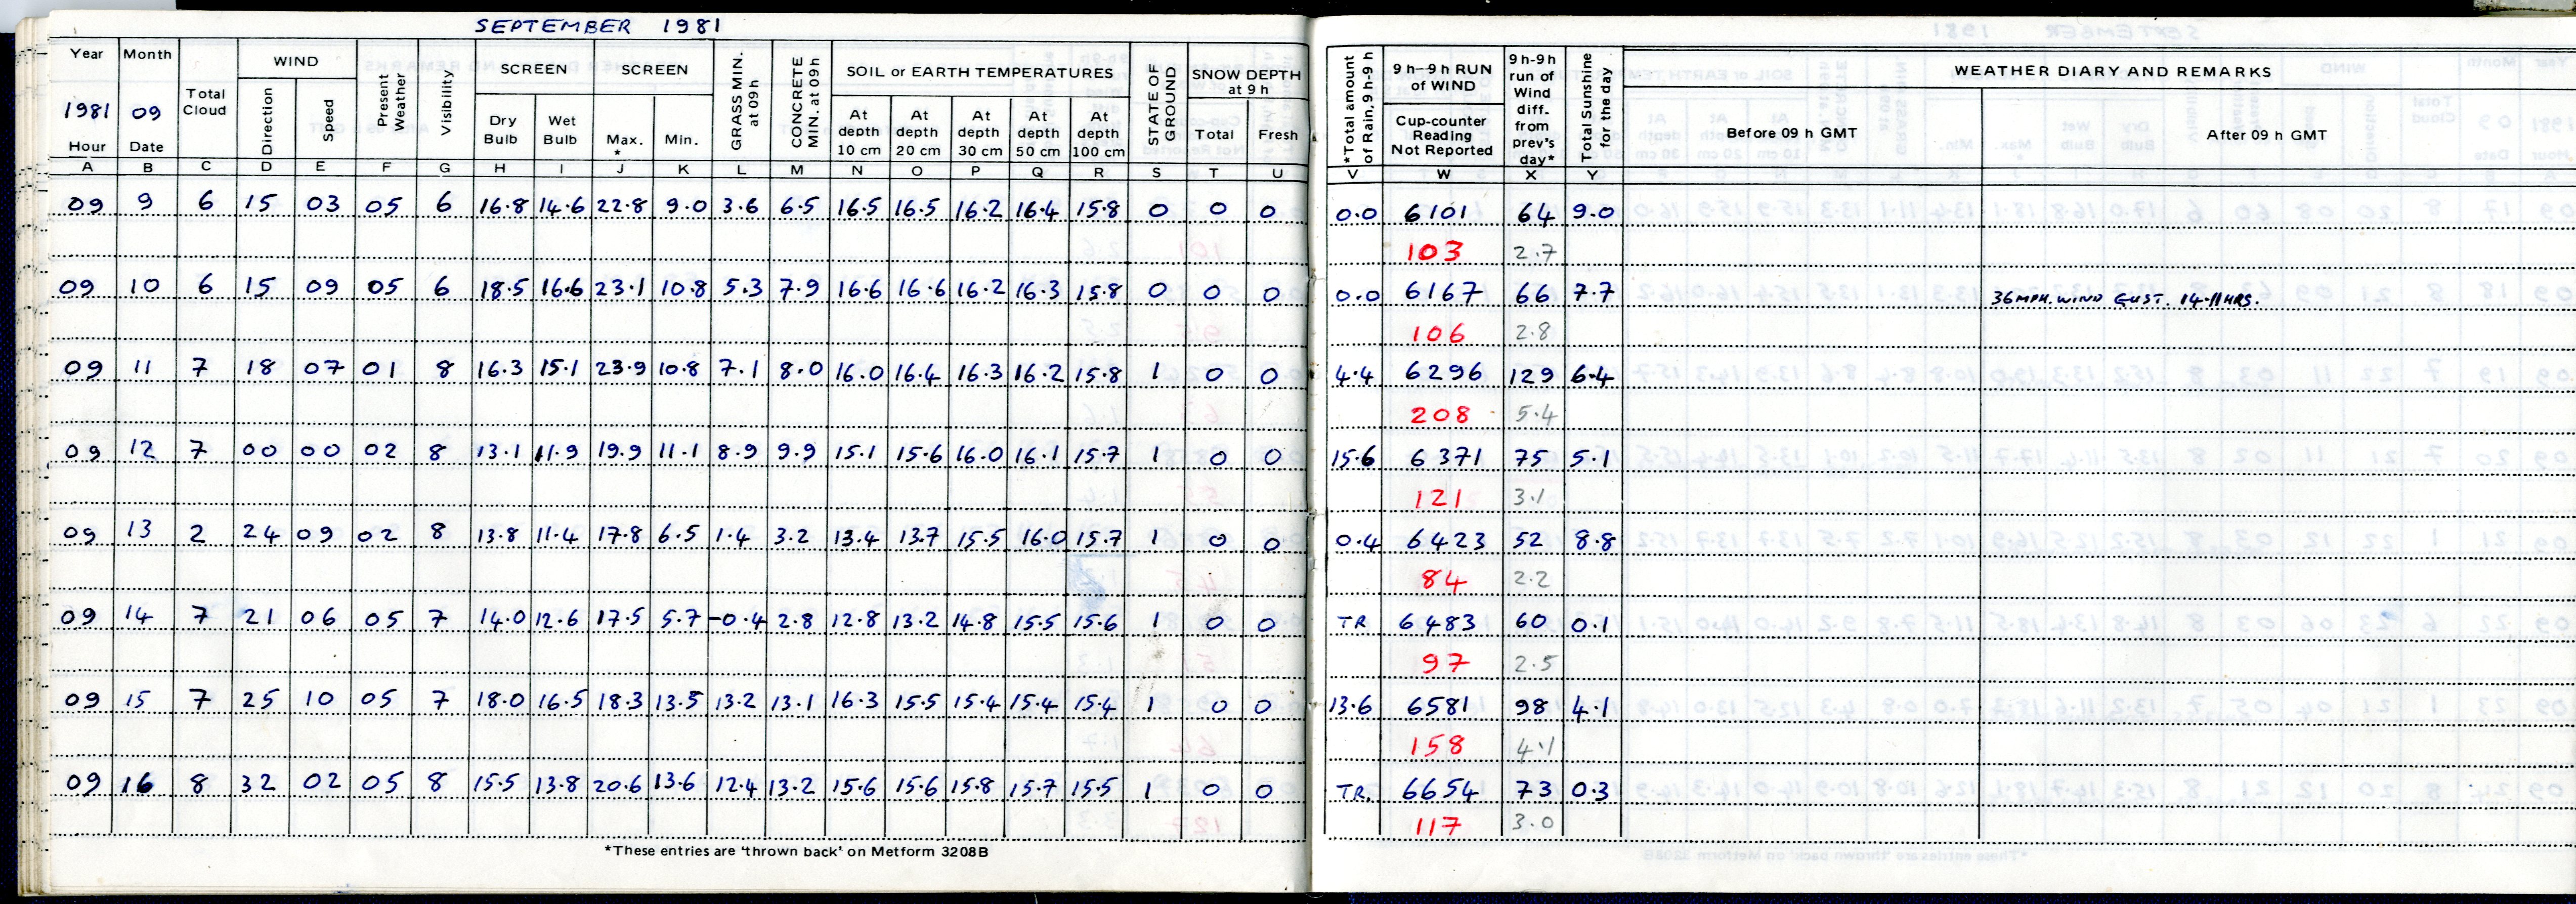 SEPTEMBER 1981
Year Month Total Cloud WIND Present Weather Visibility SCREEN SCREEN GRASS MIN. at 09h CONCRETE MIN. at 09h SOIL or EARTH TEMPERATURES STATE OF GROUND SNOW DEPTH at 9 h *Total amount of Rain, 9h-9 h 9 h—9 h RUN of WIND 9 h-9h run of Wind diff. from prev's day* Total Sunshine for the day WEATHER DIARY AND REMARKS
1981 09 Direction Speed Dry Bulb Wet Bulb Max. * Min. At depth 10 cm At depth 20 cm At depth 30 cm At depth 50 cm At depth 100 cm Total Fresh Cup-counter Reading Not Reported Before 09 h GMT After 09 h GMT
Hour Date
A B C D E F G H I J K L M N O P Q R S T U V W X Y
09 9 6 15 03 05 6 16.8 14.6 22.8 9.0 3.6 6.5 16.5 16.5 16.2 16.4 15.8 0 0 0 0.0 6101 64 9.0
103 2.7
09 10 6 15 09 05 6 18.5 16.6 23.1 10.8 5.3 7.9 16.6 16.6 16.2 16.3 15.8 0 0 0 0.0 6167 66 7.7 36MPH. WIND GUST. 14.11HRS.
106 2.8
09 11 7 18 07 01 8 16.3 15.1 23.9 10.8 7.1 8.0 16.0 16.4 16.3 16.2 15.8 1 0 0 4.4 6296 129 6.4
208 5.4
09 12 7 00 00 02 8 13.1 11.9 19.9 11.1 8.9 9.9 15.1 15.6 16.0 16.1 15.7 1 0 0 15.6 6371 75 5.1
121 3.1
09 13 2 24 09 02 8 13.8 11.4 17.8 6.5 1.4 3.2 13.4 13.7 15.5 16.0 15.7 1 0 0 0.4 6423 52 8.8
84 2.2
09 14 7 21 06 05 7 14.0 12.6 17.5 5.7 -0.4 2.8 12.8 13.2 14.8 15.5 15.6 1 0 0 TR 6483 60 0.1
97 2.5
09 15 7 25 10 05 7 18.0 16.5 18.3 13.5 13.2 13.1 16.3 15.5 15.4 15.4 15.4 1 0 0 13.6 6581 98 4.1
158 4.1
09 16 8 32 02 05 8 15.5 13.8 20.6 13.6 12.4 13.2 15.6 15.6 15.8 15.7 15.5 1 0 0 TR. 6654 73 0.3
117 3.0
*These entries are 'thrown back' on Metform 3208B